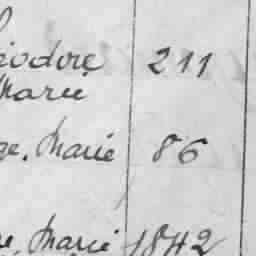 éodore 211
Marie
ge, Marie 86
e, Marie 1842